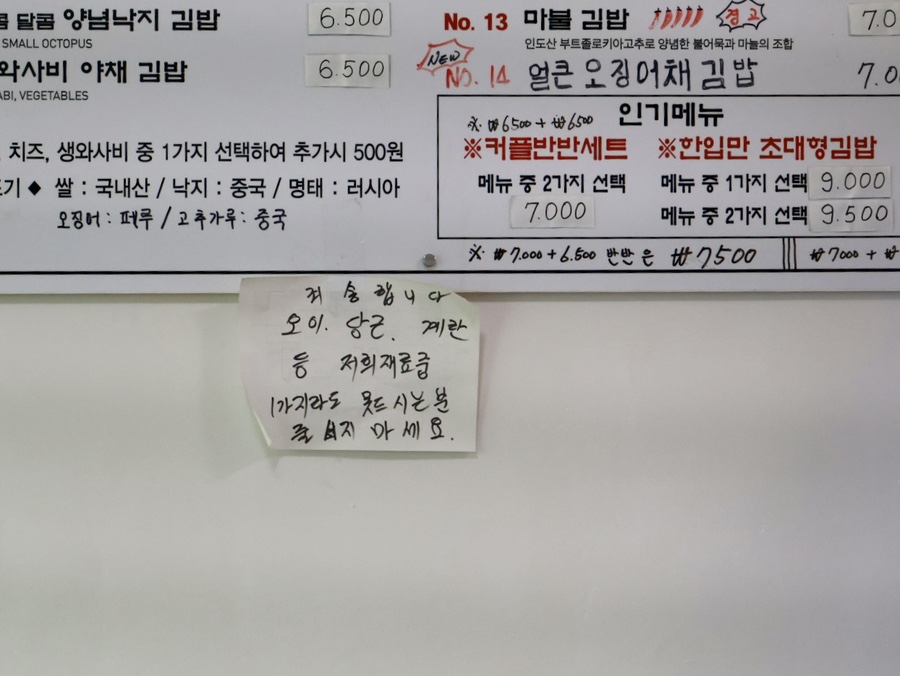 콤 달콤 양념낙지 김밥 6.500
SMALL OCTOPUS
와사비 야채 김밥 6.500
ABI, VEGETABLES
치즈, 생와사비 중 1가지 선택하여 추가시 500원
표기 ◆ 쌀 : 국내산 / 낙지 : 중국 / 명태 : 러시아
오징어 : 페루 / 고추가루 : 중국
No. 13 마불 김밥 경고 7.0
인도산 부트졸로키아고추로 양념한 불어묵과 마늘의 조합
NEW
NO. 14 얼큰 오징어채 김밥 7.0
인기메뉴
※ ₩6500 + ₩6500
※커플반반세트
메뉴 중 2가지 선택
7.000
※한입만 초대형김밥
메뉴 중 1가지 선택 9.000
메뉴 중 2가지 선택 9.500
※ ₩7.000 + 6.500 반반은 ₩7500
₩7000 + ₩
죄송합니다
오이. 당근. 계란
등 저희재료급
1가지라도 못드시는분
줄 서지 마세요.